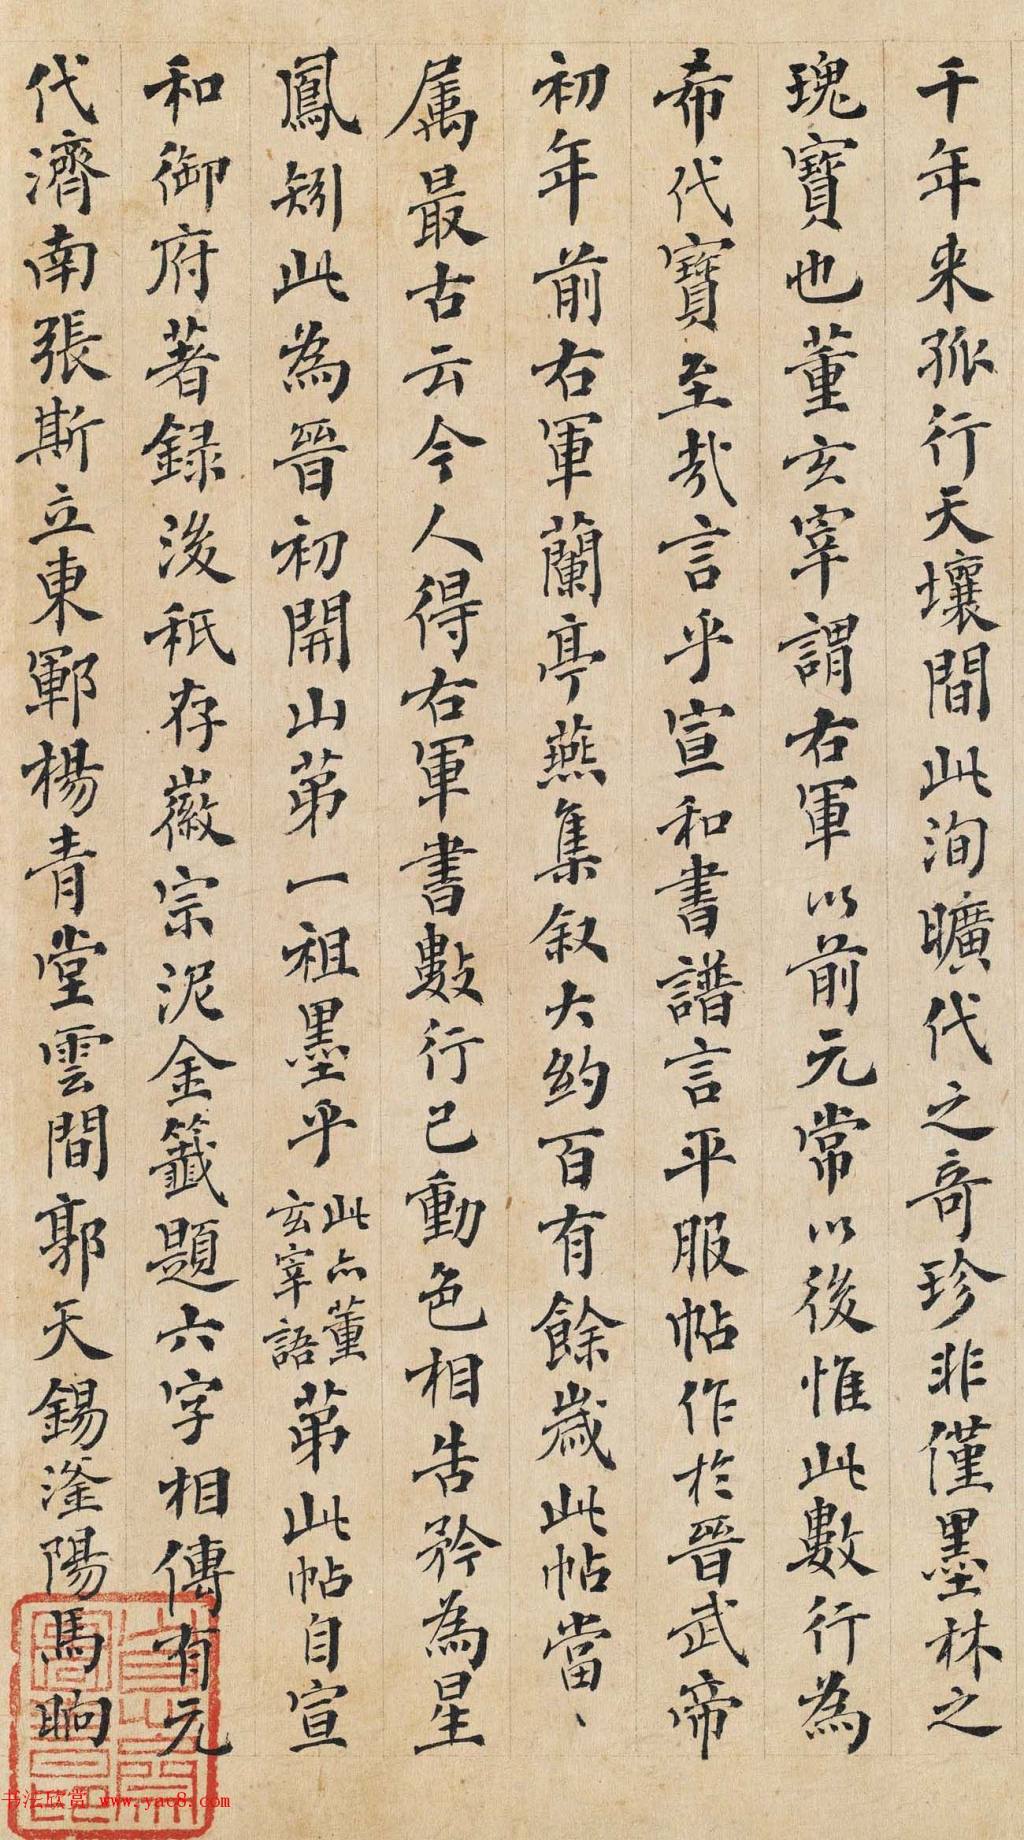 千年来孤行天壤間此洵曠代之奇珍非僅墨林之
瑰寶也董玄宰謂右軍以前元常以後惟此數行為
希代寶至哉言乎宣和書譜言平服帖作於晉武帝
初年前右軍蘭亭燕集叙大約百有餘歲此帖當、
属最古云今人得右軍書數行已動色相告矜為星
鳳矧此為晉初開山第一祖墨乎此亦董玄宰語第此帖自宣
和御府著録後秖存徽宗泥金籤題六字相傳有元
代濟南張斯立東鄆楊青堂雲間郭天錫滏陽馬晌
书法欣赏 www.yac8.com